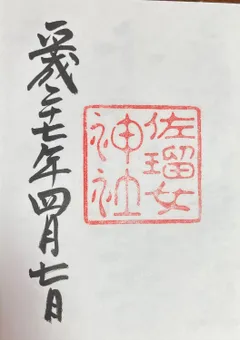 平成二十七年四月七日
佐瑠女
神社